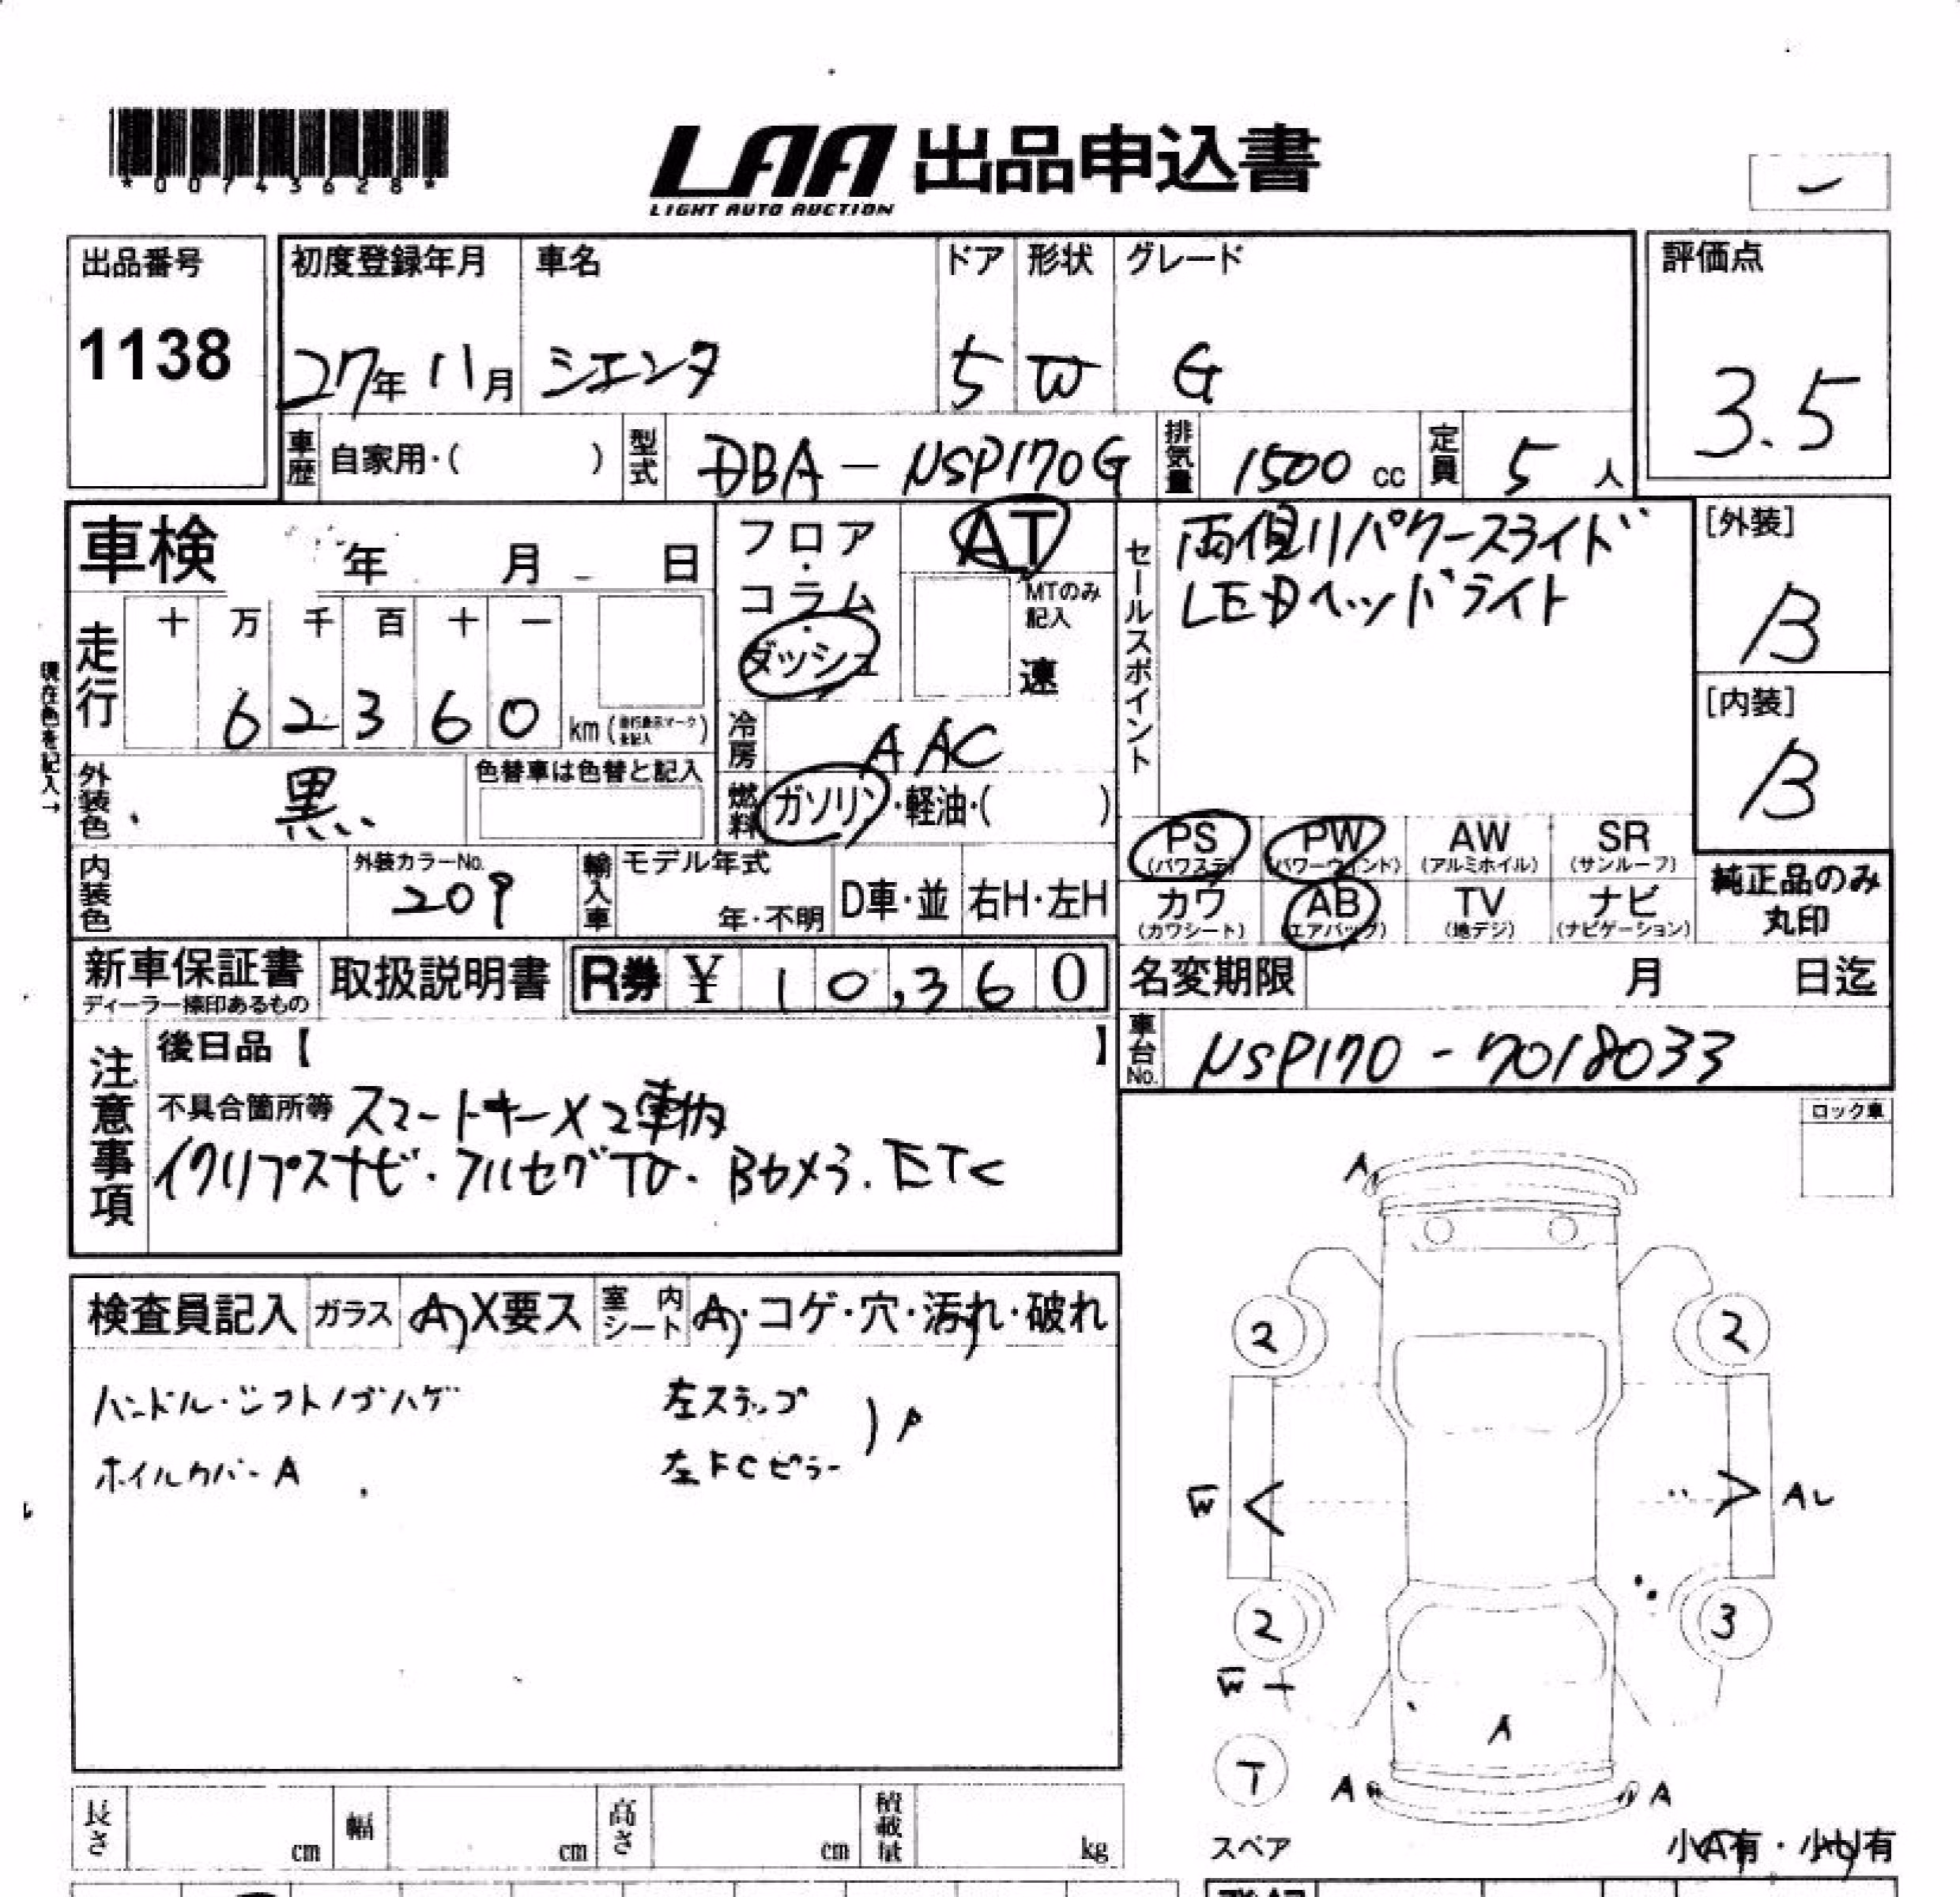 *00743628*
LAA 出品申込書
LIGHT AUTO AUCTION
出品番号 初度登録年月 車名 ドア 形状 グレード 評価点
1138 27年11月 シエンタ 5 W G 3.5
車歴 自家用・( ) 型式 DBA-NSP170G 排気量 1500cc 定員 5人
車検 年 月 日
フロア・コラム・ダッシュ
AT
MTのみ記入
速
セールスポイント
両側パワースライド
LEDヘッドライト
[外装]
B
[内装]
B
現在色を記入→
走行 十 万 千 百 十 一
62360 km
冷房 AAC
外装色 黒 色替車は色替と記入
燃料 ガソリン・軽油・( )
内装色 外装カラーNo. 209 輸入車 モデル年式 年・不明 D車・並 右H・左H
PS (パワステ) PW (パワーウィンド) AW (アルミホイル) SR (サンルーフ)
カワ (カワシート) AB (エアバッグ) TV (地デジ) ナビ (ナビゲーション)
純正品のみ
丸印
新車保証書 取扱説明書 R券 ¥10,360
ディーラー捺印あるもの
名変期限 月 日迄
車台No. NSP170-7018033
注意事項
後日品【 】
不具合箇所等 スマートキー×2車内
イクリプスナビ・フルセグTV・Bカメラ.ETC
ロック車
検査員記入 ガラス A X要ス 室内シート A・コゲ・穴・汚れ・破れ
ハンドル・シフトノブハゲ 左ステップ
ホイルカバーA 左FCピラー
A
2 2
W AU
2 3
W
A
T A A
スペア
小A有・小U有
長さ cm 幅 cm 高さ cm 積載量 kg